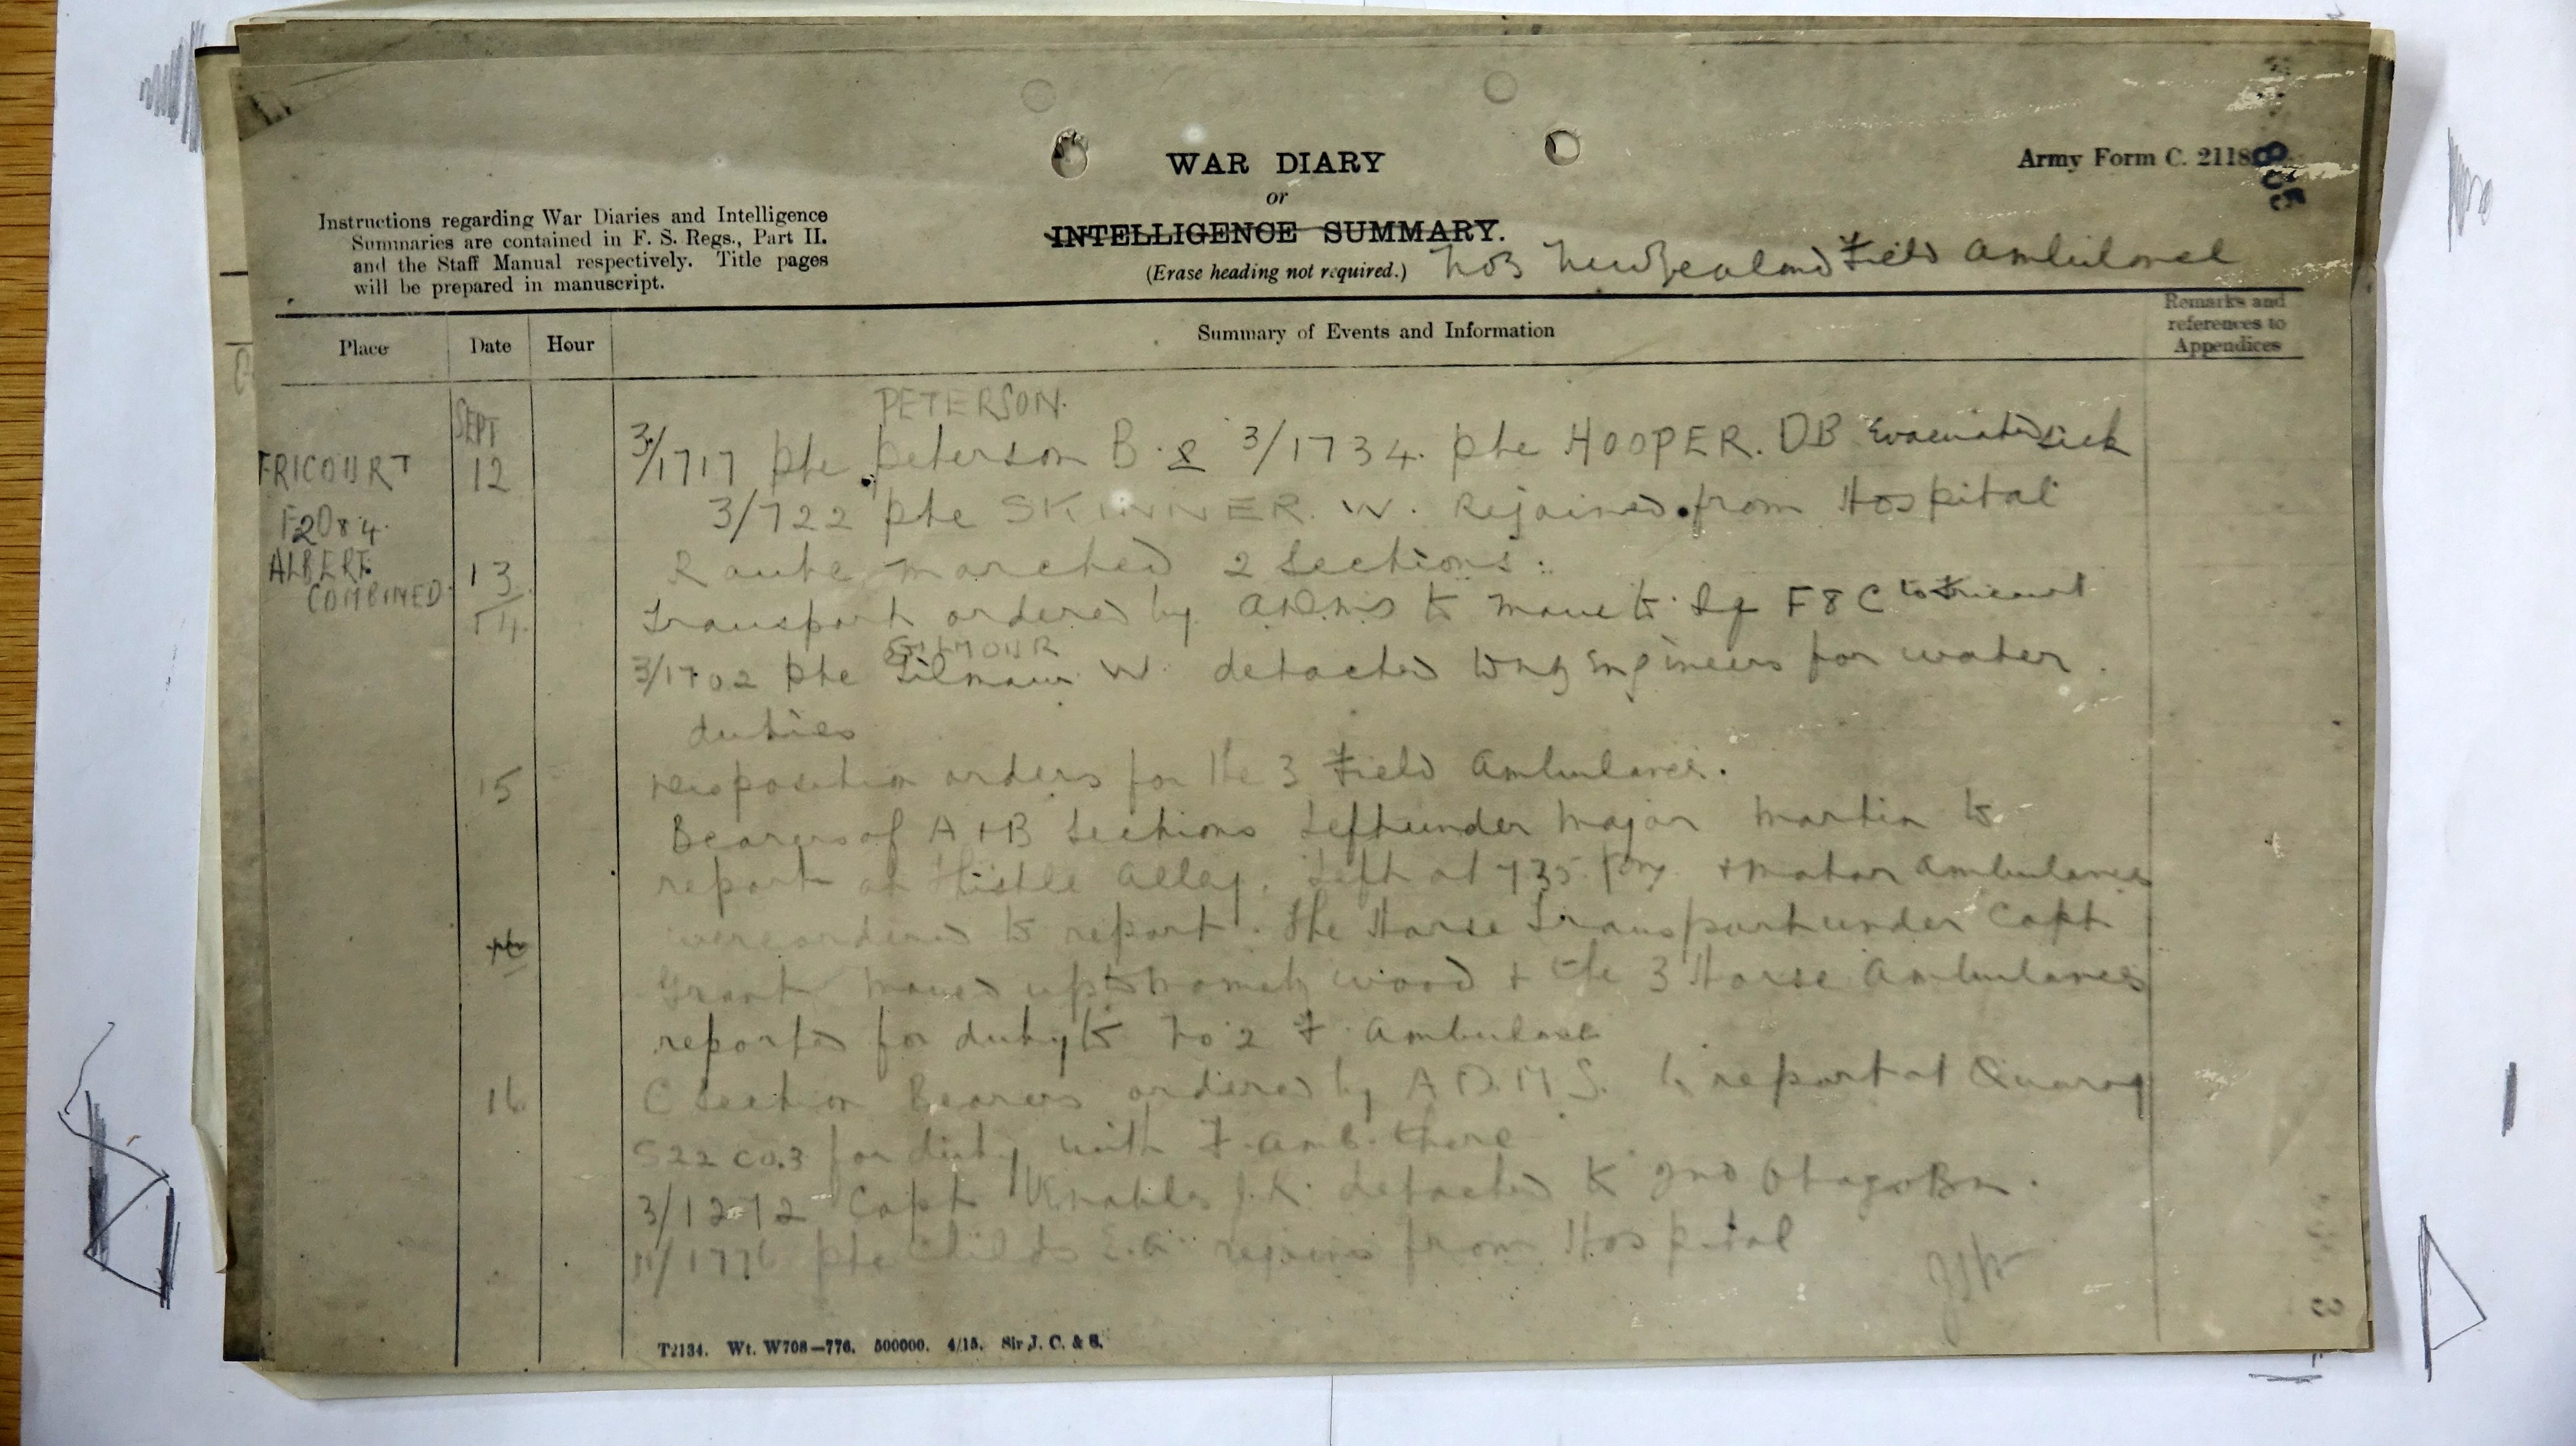 WAR DIARY
or
INTELLIGENCE SUMMARY.
(Erase heading not required.)
Army Form C. 2118
Instructions regarding War Diaries and Intelligence
Summaries are contained in F. S. Regs., Part II.
and the Staff Manual respectively. Title pages
will be prepared in manuscript.
No 3 New Zealand Field Ambulance
Place Date Hour Summary of Events and Information Remarks and references to Appendices
SEPT PETERSON.
FRICOURT 12 3/1717 pte peterson B. & 3/1734. pte HOOPER. DB Evacuated sick
3/722 pte SKINNER. W. Rejoined from Hospital
F20 8.4.
ALBERT 13 Route marched 2 Sections.
COMBINED 14. Transport ordered by ADMS to move to Sq F8C to Fricourt
GILMOUR
3/1702 pte Gilmour W. detached to NZ Engineers for water
duties
15 Disposition orders for the 3 Field Ambulances.
Bearers of A + B Sections left under Major Martin to
report at Thistle Alley. Left at 7.35. pm. + motor Ambulances
were ordered to report. The Horse Transport under Capt
Grant moved up to Mametz wood + the 3 Horse Ambulances
reported for duty to No 2 F. Ambulance
16 C Section Bearers ordered by A.D.M.S. to report at Quarry
S22 c0.3 for duty with F. Amb. there
3/1272 Capt Venables J.K. detached to 2nd Otago Bn.
/1776 pte Childs E.A. rejoins from Hospital
T2134. Wt. W708—776. 500000. 4/15. Sir J. C. & S.